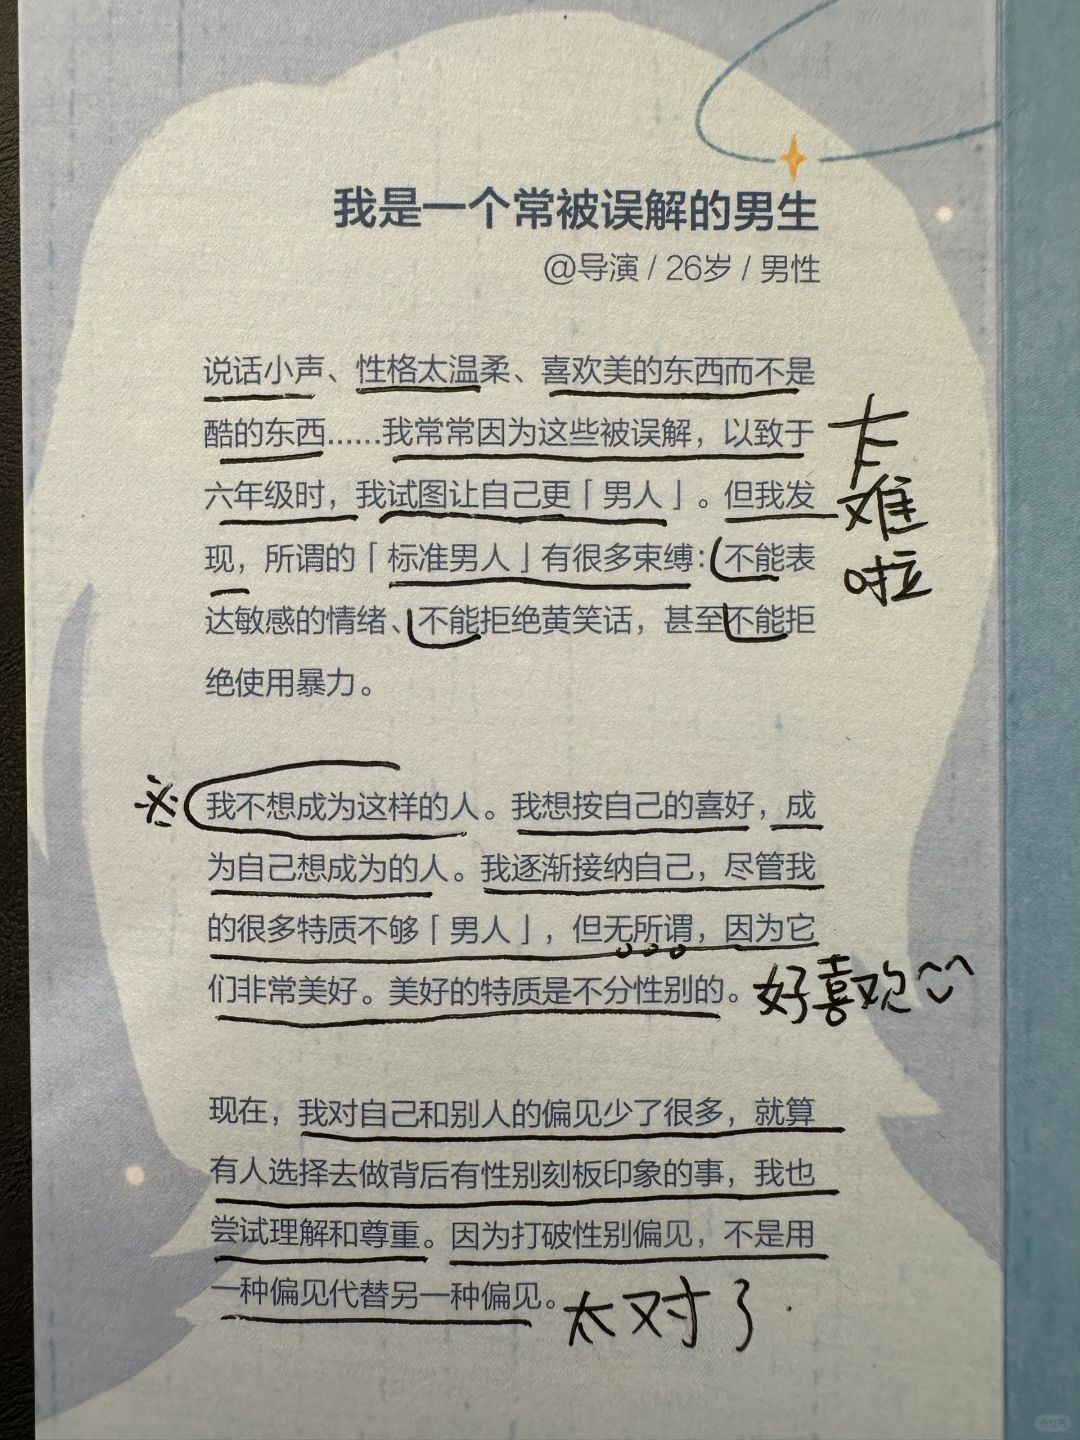 我是一个常被误解的男生
@导演 / 26岁 / 男性
说话小声、性格太温柔、喜欢美的东西而不是
酷的东西……我常常因为这些被误解，以致于
六年级时，我试图让自己更「男人」。但我发
现，所谓的「标准男人」有很多束缚：不能表
达敏感的情绪、不能拒绝黄笑话，甚至不能拒
绝使用暴力。
难
啦
我不想成为这样的人。我想按自己的喜好，成
为自己想成为的人。我逐渐接纳自己，尽管我
的很多特质不够「男人」，但无所谓，因为它
们非常美好。美好的特质是不分性别的。
好喜欢
现在，我对自己和别人的偏见少了很多，就算
有人选择去做背后有性别刻板印象的事，我也
尝试理解和尊重。因为打破性别偏见，不是用
一种偏见代替另一种偏见。
太对了
小红书